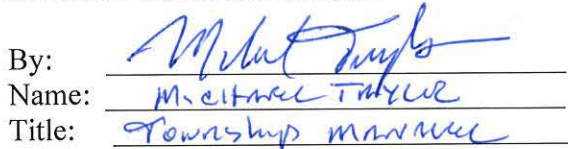 By: Michael Taylor
Name: Michael Taylor
Title: Township Manager